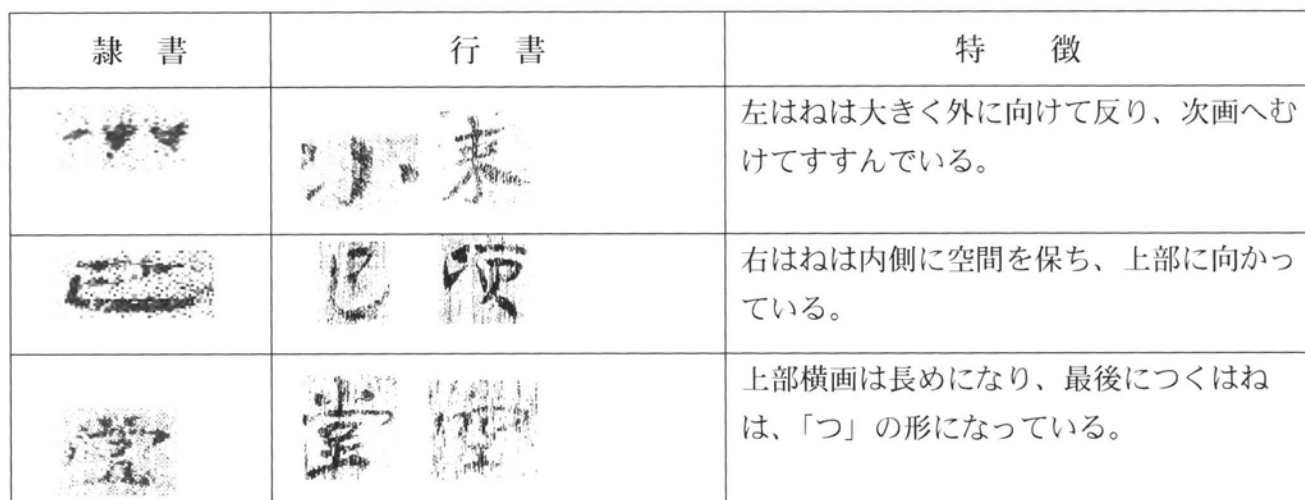 隷　書　行　書　特　　徴
左はねは大きく外に向けて反り、次画へむ
けてすすんでいる。
小
已
右はねは内側に空間を保ち、上部に向かっ
ている。
堂
上部横画は長めになり、最後につくはね
は、「つ」の形になっている。